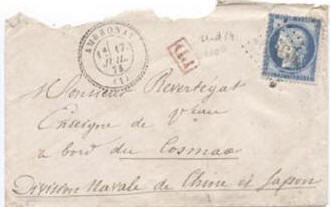 AMBRONAY
17
JUIL.
74
(1)
P.D.
Monsieur Revertégat
Enseigne de Vieau
à bord du Cosmao
Division Navale de Chine et Japon